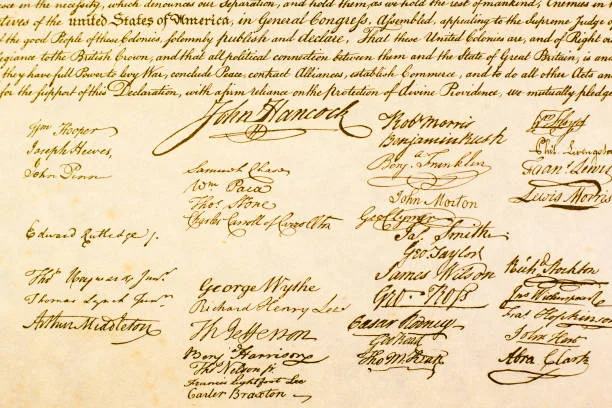 in the necessity, which denounces our Separation, and hold them, as we hold the rest of mankind, Enemies in
tives of the united States of America, in General Congress, Assembled, appealing to the Supreme Judge o
d the good People of these Colonies, solemnly publish and declare, That these United Colonies are, and of Right ou
egiance to the British Crown, and that all political connection between them and the State of Great Britain, is an
they have full Power to levy War, conclude Peace, contract Alliances, establish Commerce, and to do all other Acts an
for the support of this Declaration, with a firm reliance on the protection of divine Providence, we mutually pledge
John Hancock
Wm Hooper
Joseph Hewes,
John Penn
Edward Rutledge /.
Thos Heyward Junr.
Thomas Lynch Junr.
Arthur Middleton
Samuel Chase
Wm Paca
Thos Stone
Charles Carroll of Carrollton
George Wythe
Richard Henry Lee
Th Jefferson
Benj Harrison
Thos Nelson jr.
Francis Lightfoot Lee
Carter Braxton
Robt Morris
Benjamin Rush
Benj. Franklin
John Morton
Geo Clymer
Jas. Smith
Geo. Taylor
James Wilson
Geo. Ross
Caesar Rodney
Geo Read
Tho M:Kean
Wm Floyd
Phil. Livingston
Frans. Lewis
Lewis Morris
Richd. Stockton
Jno Witherspoon
Fras. Hopkinson
John Hart
Abra Clark